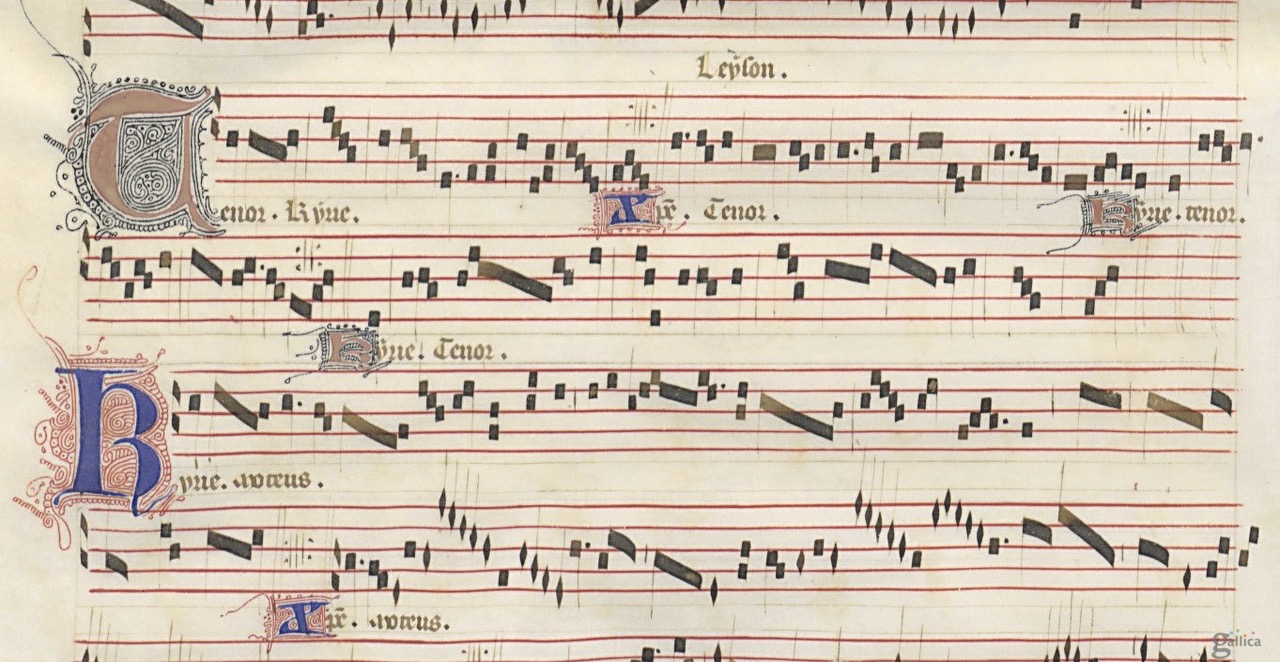 Leyson.
Tenor. Kyrie.
Xp̄e. Tenor.
Kyrie. tenor.
Kyrie. Tenor.
Kyrie.
Xp̄e.
gallica